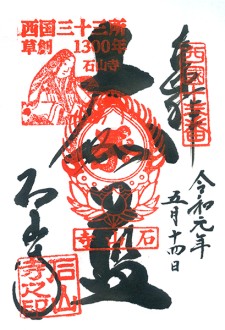 奉拝
西国十三番
西国三十三所
草創 1300年
石山寺
大伽藍
令和元年
五月十四日
石山寺
石山寺
石山寺之印